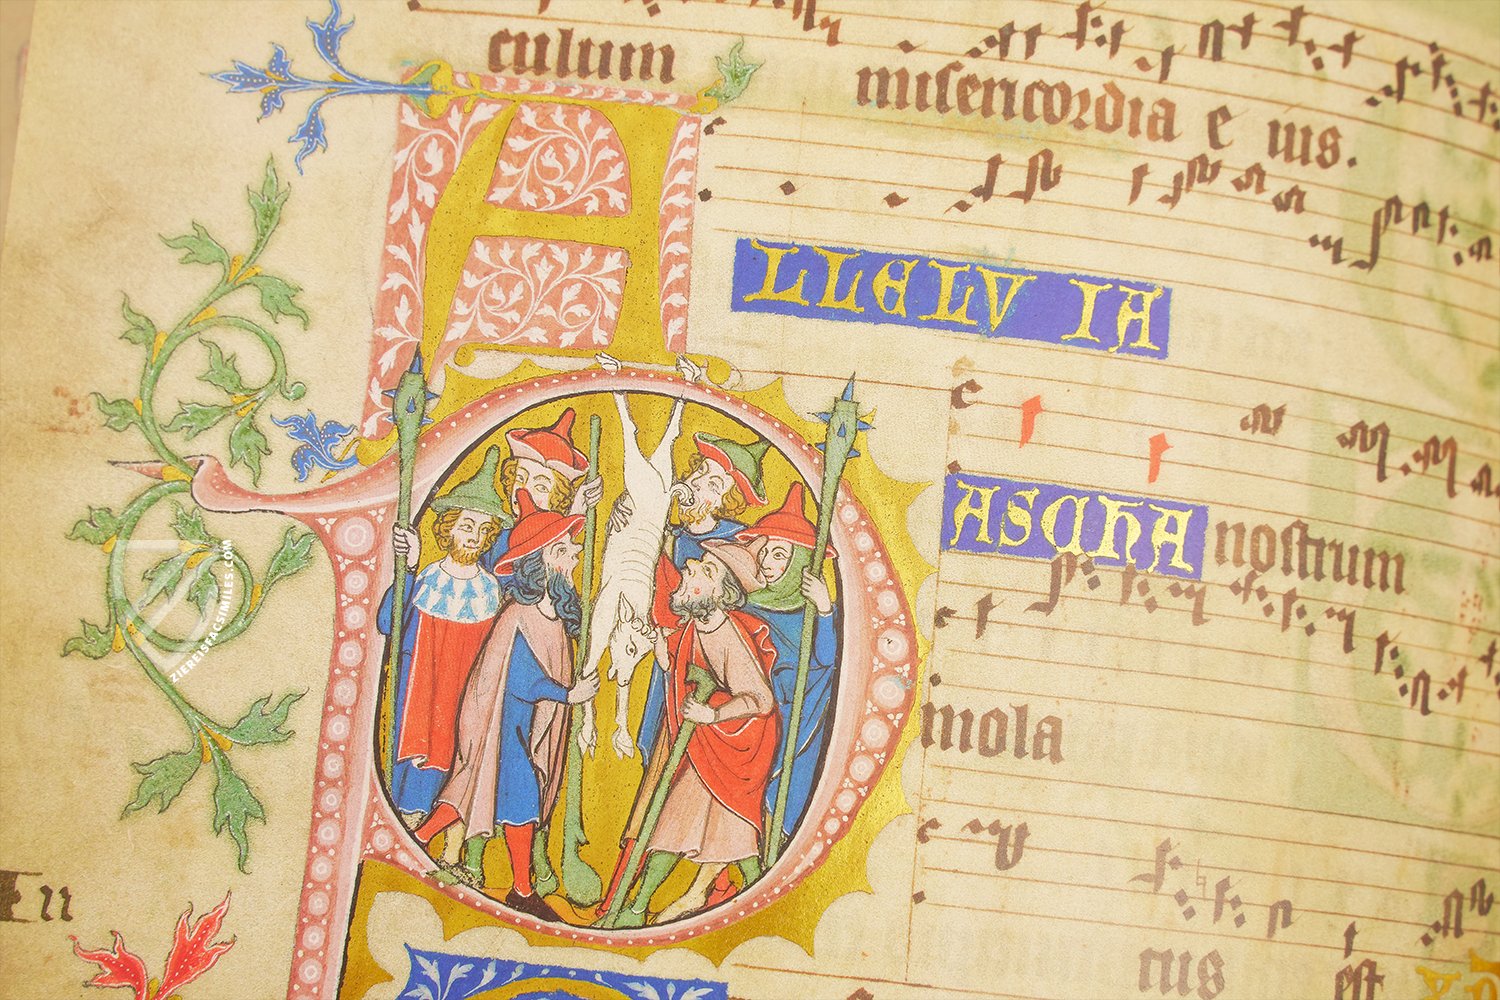 culum misericordia e ius.
A LLELV IA
P ASCHA nostrum
mola
tus est
ZIEREISFACSIMILES.COM